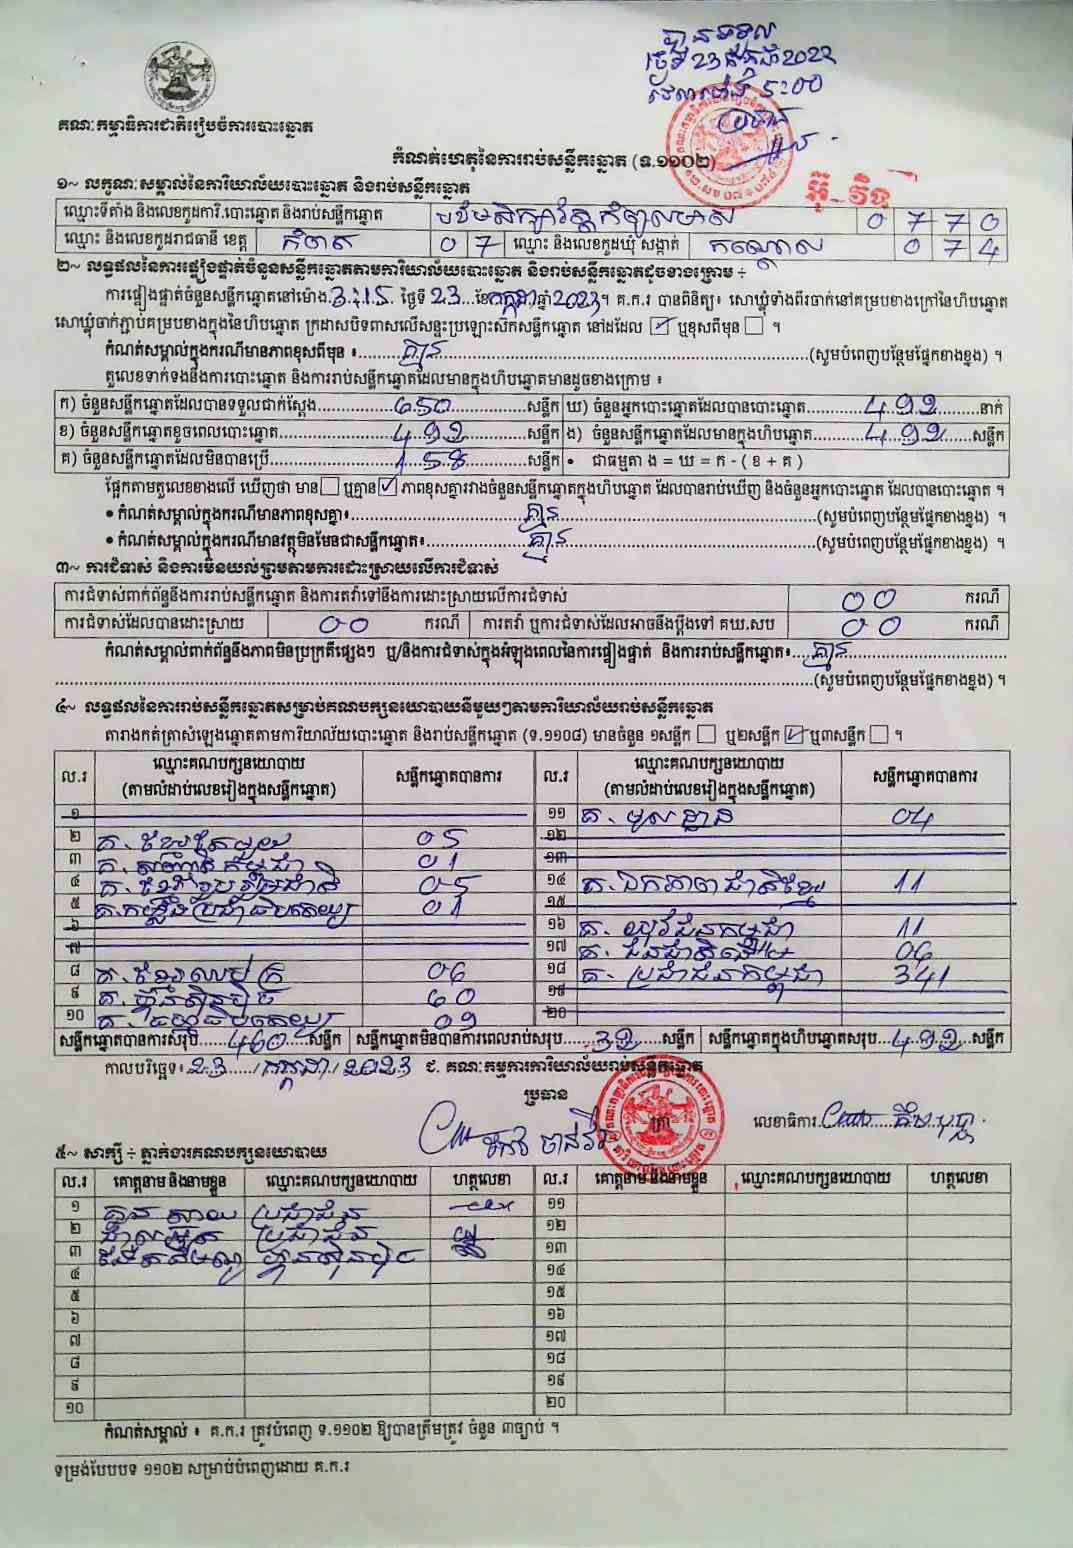 បានទទួល
ថ្ងៃទី 23 កក្កដា 2023
វេលាម៉ោង 5:00
ប្រធាន
គណៈកម្មាធិការជាតិរៀបចំការបោះឆ្នោត
កំណត់ហេតុនៃការរាប់សន្លឹកឆ្នោត (ទ.១១០២)
១~ លក្ខណៈសម្គាល់នៃការិយាល័យបោះឆ្នោត និងរាប់សន្លឹកឆ្នោត
ឈ្មោះទីតាំង និងលេខកូដការិ.បោះឆ្នោត និងរាប់សន្លឹកឆ្នោត 0 7 7 0
ឈ្មោះ និងលេខកូដរាជធានី ខេត្ត កំពត 0 7 ឈ្មោះ និងលេខកូដឃុំ សង្កាត់ កណ្តោល 0 7 4
២~ លទ្ធផលនៃការផ្ទៀងផ្ទាត់ចំនួនសន្លឹកឆ្នោតតាមការិយាល័យបោះឆ្នោត និងរាប់សន្លឹកឆ្នោតដូចខាងក្រោម ÷
ការផ្ទៀងផ្ទាត់ចំនួនសន្លឹកឆ្នោតនៅម៉ោង 3:15 ថ្ងៃទី 23 ខែ កក្កដា ឆ្នាំ 2023។ គ.ក.រ បានពិនិត្យ៖ សោឃ្លុំទាំងពីរចាក់នៅគម្របខាងក្រៅនៃហិបឆ្នោត
សោឃ្លុំចាក់ភ្ជាប់គម្របខាងក្នុងនៃហិបឆ្នោត ក្រដាសបិទពាសលើសន្ទះប្រឡោះស៊កសន្លឹកឆ្នោត នៅដដែល ☑ ឬខុសពីមុន ☐ ។
កំណត់សម្គាល់ក្នុងករណីមានភាពខុសពីមុន ៖ គ្មាន (សូមបំពេញបន្ថែមផ្នែកខាងខ្នង) ។
តួលេខទាក់ទងនឹងការបោះឆ្នោត និងការរាប់សន្លឹកឆ្នោតដែលមានក្នុងហិបឆ្នោតមានដូចខាងក្រោម ៖
ក) ចំនួនសន្លឹកឆ្នោតដែលបានទទួលជាក់ស្តែង 650 សន្លឹក ឃ) ចំនួនអ្នកបោះឆ្នោតដែលបានបោះឆ្នោត 492 នាក់
ខ) ចំនួនសន្លឹកឆ្នោតខូចពេលបោះឆ្នោត 492 សន្លឹក ង) ចំនួនសន្លឹកឆ្នោតដែលមានក្នុងហិបឆ្នោត 492 សន្លឹក
គ) ចំនួនសន្លឹកឆ្នោតដែលមិនបានប្រើ 158 សន្លឹក • ជាធម្មតា ង = ឃ = ក - ( ខ + គ )
ផ្អែកតាមតួលេខខាងលើ ឃើញថា មាន ☐ ឬគ្មាន ☑ ភាពខុសគ្នារវាងចំនួនសន្លឹកឆ្នោតក្នុងហិបឆ្នោត ដែលបានរាប់ឃើញ និងចំនួនអ្នកបោះឆ្នោត ដែលបានបោះឆ្នោត ។
• កំណត់សម្គាល់ក្នុងករណីមានភាពខុសគ្នា៖ គ្មាន (សូមបំពេញបន្ថែមផ្នែកខាងខ្នង) ។
• កំណត់សម្គាល់ក្នុងករណីមានវត្ថុមិនមែនជាសន្លឹកឆ្នោត៖ គ្មាន (សូមបំពេញបន្ថែមផ្នែកខាងខ្នង) ។
៣~ ការជំទាស់ និងការមិនយល់ព្រមតាមការដោះស្រាយលើការជំទាស់
ការជំទាស់ពាក់ព័ន្ធនឹងការរាប់សន្លឹកឆ្នោត និងការតវ៉ាទៅនឹងការដោះស្រាយលើការជំទាស់ 00 ករណី
ការជំទាស់ដែលបានដោះស្រាយ 00 ករណី ការតវ៉ា ឬការជំទាស់ដែលអាចនឹងប្តឹងទៅ គឃ.សប 00 ករណី
កំណត់សម្គាល់ពាក់ព័ន្ធនឹងភាពមិនប្រក្រតីផ្សេងៗ ឬ/និងការជំទាស់ក្នុងអំឡុងពេលនៃការផ្ទៀងផ្ទាត់ និងការរាប់សន្លឹកឆ្នោត៖ គ្មាន
(សូមបំពេញបន្ថែមផ្នែកខាងខ្នង) ។
៤~ លទ្ធផលនៃការរាប់សន្លឹកឆ្នោតសម្រាប់គណបក្សនយោបាយនីមួយៗតាមការិយាល័យរាប់សន្លឹកឆ្នោត
តារាងកត់ត្រាសំឡេងឆ្នោតតាមការិយាល័យបោះឆ្នោត និងរាប់សន្លឹកឆ្នោត (ទ.១១០៨) មានចំនួន ១សន្លឹក ☐ ឬ២សន្លឹក ☑ ឬ៣សន្លឹក ☐ ។
ល.រ ឈ្មោះគណបក្សនយោបាយ (តាមលំដាប់លេខរៀងក្នុងសន្លឹកឆ្នោត) សន្លឹកឆ្នោតបានការ ល.រ ឈ្មោះគណបក្សនយោបាយ (តាមលំដាប់លេខរៀងក្នុងសន្លឹកឆ្នោត) សន្លឹកឆ្នោតបានការ
១ ១១ គ. មូលដ្ឋាន 04
២ គ. ខ្មែរតែមួយ 05 ១២
៣ គ. សញ្ជាតិកម្ពុជា 01 ១៣
៤ គ. ខ្មែររួបរួមជាតិ 05 ១៤ គ. ឯកភាពជាតិខ្មែរ 11
៥ គ. កម្លាំងប្រជាធិបតេយ្យ 01 ១៥
៦ ១៦ គ. យុវជនកម្ពុជា 11
៧ ១៧ គ. ជនជាតិដើម 06
៨ គ. ខ្មែរឈប់ក្រ 06 ១៨ គ. ប្រជាជនកម្ពុជា 341
៩ គ. ហ្វ៊ុនស៊ិនប៉ិច 60 ១៩
១០ 09 ២០
សន្លឹកឆ្នោតបានការសរុប 460 សន្លឹក សន្លឹកឆ្នោតមិនបានការពេលរាប់សរុប 32 សន្លឹក សន្លឹកឆ្នោតក្នុងហិបឆ្នោតសរុប 492 សន្លឹក
កាលបរិច្ឆេទ៖ 23 / កក្កដា / 2023 ជ. គណៈកម្មការការិយាល័យរាប់សន្លឹកឆ្នោត
ប្រធាន
លេខាធិការ
៥~ សាក្សី ÷ ភ្នាក់ងារគណបក្សនយោបាយ
ល.រ គោត្តនាម និងនាមខ្លួន ឈ្មោះគណបក្សនយោបាយ ហត្ថលេខា ល.រ គោត្តនាម និងនាមខ្លួន ឈ្មោះគណបក្សនយោបាយ ហត្ថលេខា
១ ប្រជាជន ១១
២ ប្រជាជន ១២
៣ ហ្វ៊ុនស៊ិនប៉ិច ១៣
៤ ១៤
៥ ១៥
៦ ១៦
៧ ១៧
៨ ១៨
៩ ១៩
១០ ២០
កំណត់សម្គាល់ ៖ គ.ក.រ ត្រូវបំពេញ ទ.១១០២ ឱ្យបានត្រឹមត្រូវ ចំនួន ៣ច្បាប់ ។
ទម្រង់បែបបទ ១១០២ សម្រាប់បំពេញដោយ គ.ក.រ